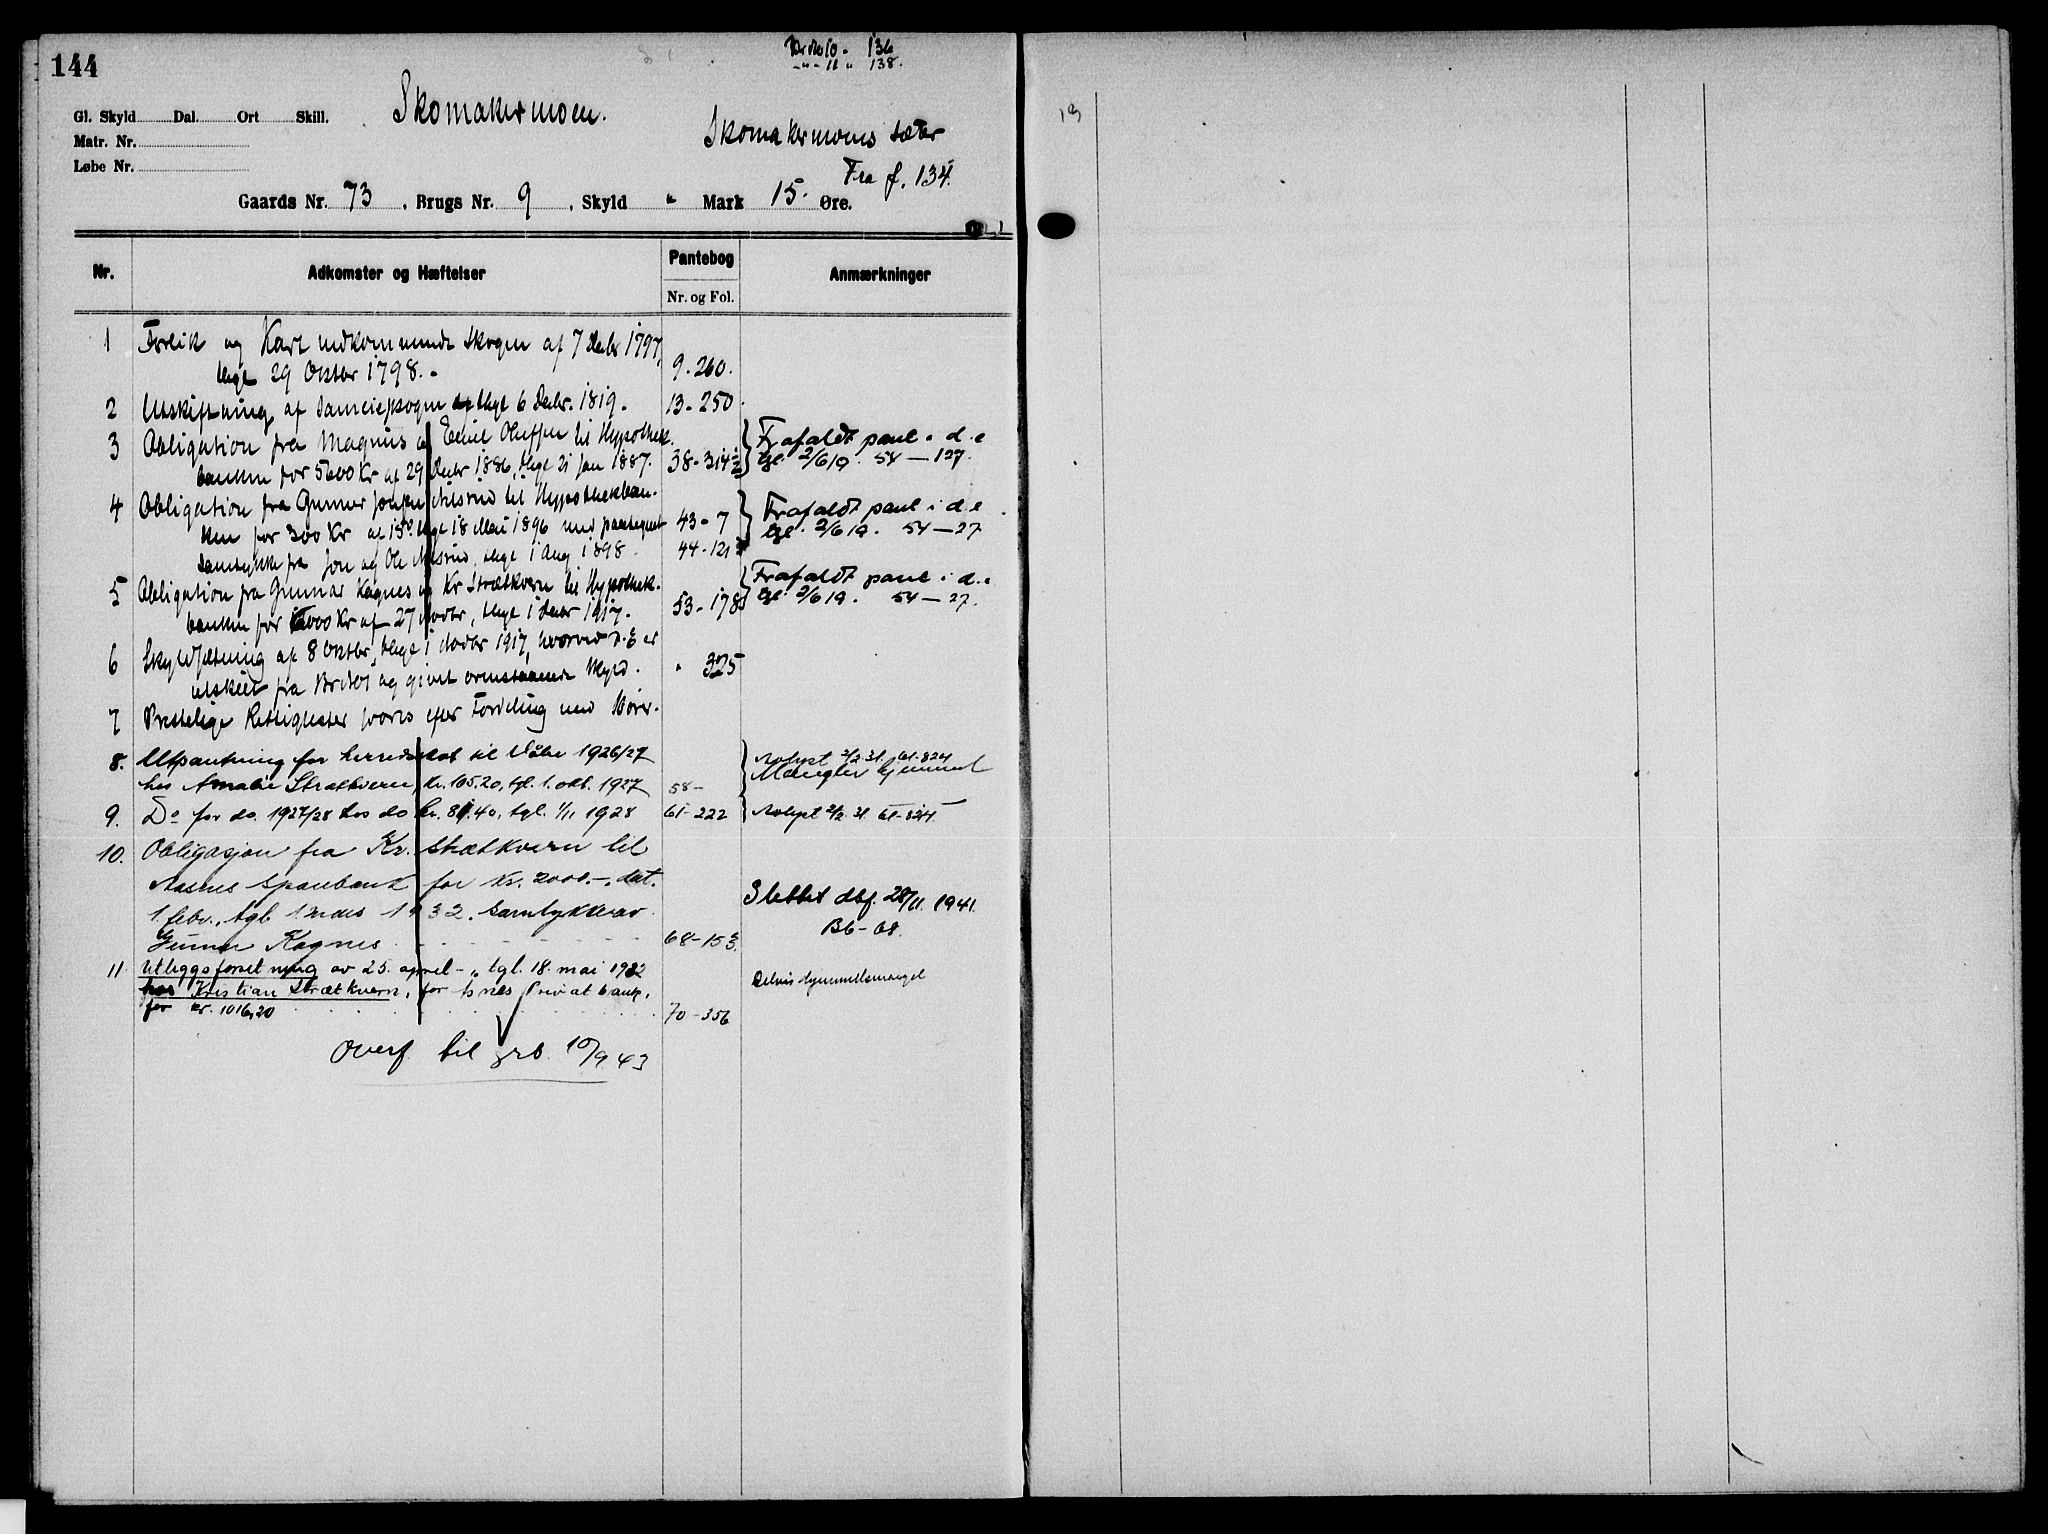 144
Br No 10 - 136
" - 11 " 138.
Gl. Skyld Dal. Ort Skill.
Skomakermoen.
Matr. Nr.
Skomakermoens sæter
Løbe Nr.
Fra f. 134.
Gaards Nr. 73, Brugs Nr. 9, Skyld " Mark 15. Øre.
Nr. Adkomster og Hæftelser Pantebog Anmærkninger
Nr. og Fol.
1 Forlik og Kart vedkommende Skogen af 7 Decbr 1797,
tlyst 29 Oktbr 1798. - 9-260.
2 Utskiftning af Sameieskogen tlyst 6 Decbr. 1819. 13-250.
3 Obligation fra Magnus og Emil Oluffsen til Hypothek-
banken for 5600 Kr af 29 Decbr 1886, tlyst 21 Jan 1887. 38-314½
Frafaldt pant i d.e
tgl. 2/6 19. 54-127.
4 Obligation fra Gunnar Jonsen Nilsrud til Hypothekban-
ken for 300 Kr af 15de tlyst 18 Mai 1896 med paategnet 43-7
samtykke fra Jon og Ole Nilsrud, tlyst 1 Aug 1898. 44-121
Frafaldt pant i d.e
tgl. 2/6 19. 54-27
5 Obligation fra Gunnar Kagnes og Kr Strætkvern til Hypothek-
banken for 6000 Kr af 27 Novbr, tlyst 1 Decbr 1917. 53-178
Frafaldt pant i d.e
tgl. 2/6 19. 54-27.
6 Skyldsætning af 8 Oktbr, tlyst 1 Novbr 1917, hvorved d.E er
utskilt fra Br No 1 og givet ovenstaaende Skyld. " 325
7 Prestelige Rettigheter svares efter Fordeling med 16 øre.
8. Utpantning for herredsskat til Våler 1926/27
hos Amalie Strætkvern, kr. 105,20, tgl. 1. okt. 1927 58-
Avlyst 2/2 31. 61-824
Mangler hjemmel
9. Do for do. 1927/28 hos do kr. 81.40, tgl. 1/11 1928 61-222 Avlyst 2/2 31 61-824
10. Obligasjon fra Kr. Strætkvern til
Aasnes Sparebank for Kr. 2000.-, dat.
1. febr., tgl. 1 mars 1932. Samtykke av
Gunnar Kagnes 68-153.
Slettet dbf. 28/11. 1941.
B6-68.
11 Utleggsforretning av 25. april - " tgl. 18. mai 1932
hos Kristian Strætkvern, for Åsnes Privatbank,
for kr. 1016,20 70-356
Delvis hjemmelsmangel
Overf. til grb. 10/9 43
13